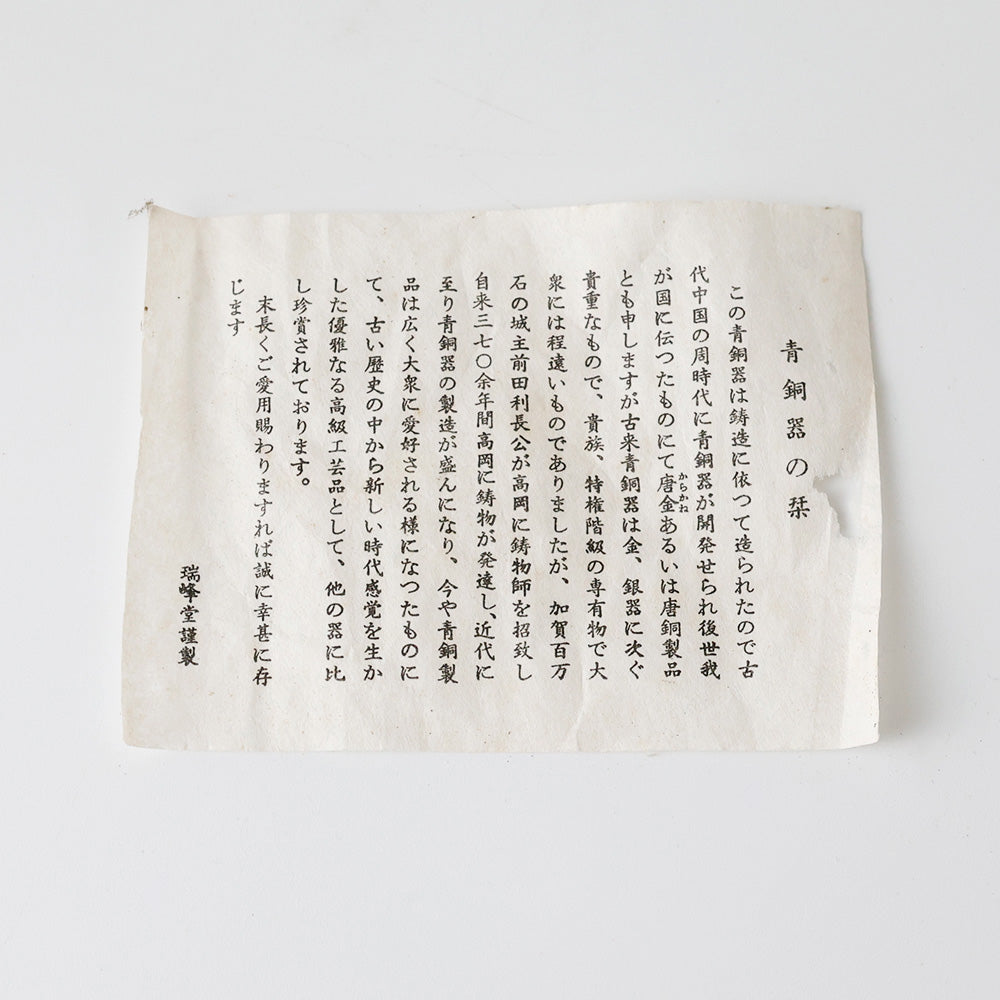 青銅器の栞
この青銅器は鋳造に依つて造られたので古
代中国の周時代に青銅器が開発せられ後世我
が国に伝つたものにて唐金あるいは唐銅製品
からかね
とも申しますが古来青銅器は金、銀器に次ぐ
貴重なもので、貴族、特権階級の専有物で大
衆には程遠いものでありましたが、加賀百万
石の城主前田利長公が高岡に鋳物師を招致し
自来三七〇余年間高岡に鋳物が発達し、近代に
至り青銅器の製造が盛んになり、今や青銅製
品は広く大衆に愛好される様になつたものに
て、古い歴史の中から新しい時代感覚を生か
した優雅なる高級工芸品として、他の器に比
し珍賞されております。
末長くご愛用賜わりますれば誠に幸甚に存
じます
瑞峰堂謹製